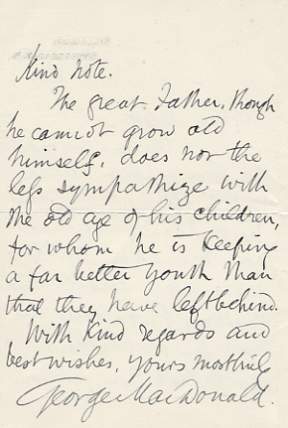 kind note.
The great Father, though
he cannot grow old
himself, does not the
less sympathize with
the old age of his children,
for whom he is keeping
a far better youth than
that they have left behind.
With kind regards and
best wishes, yours most truly
George MacDonald.